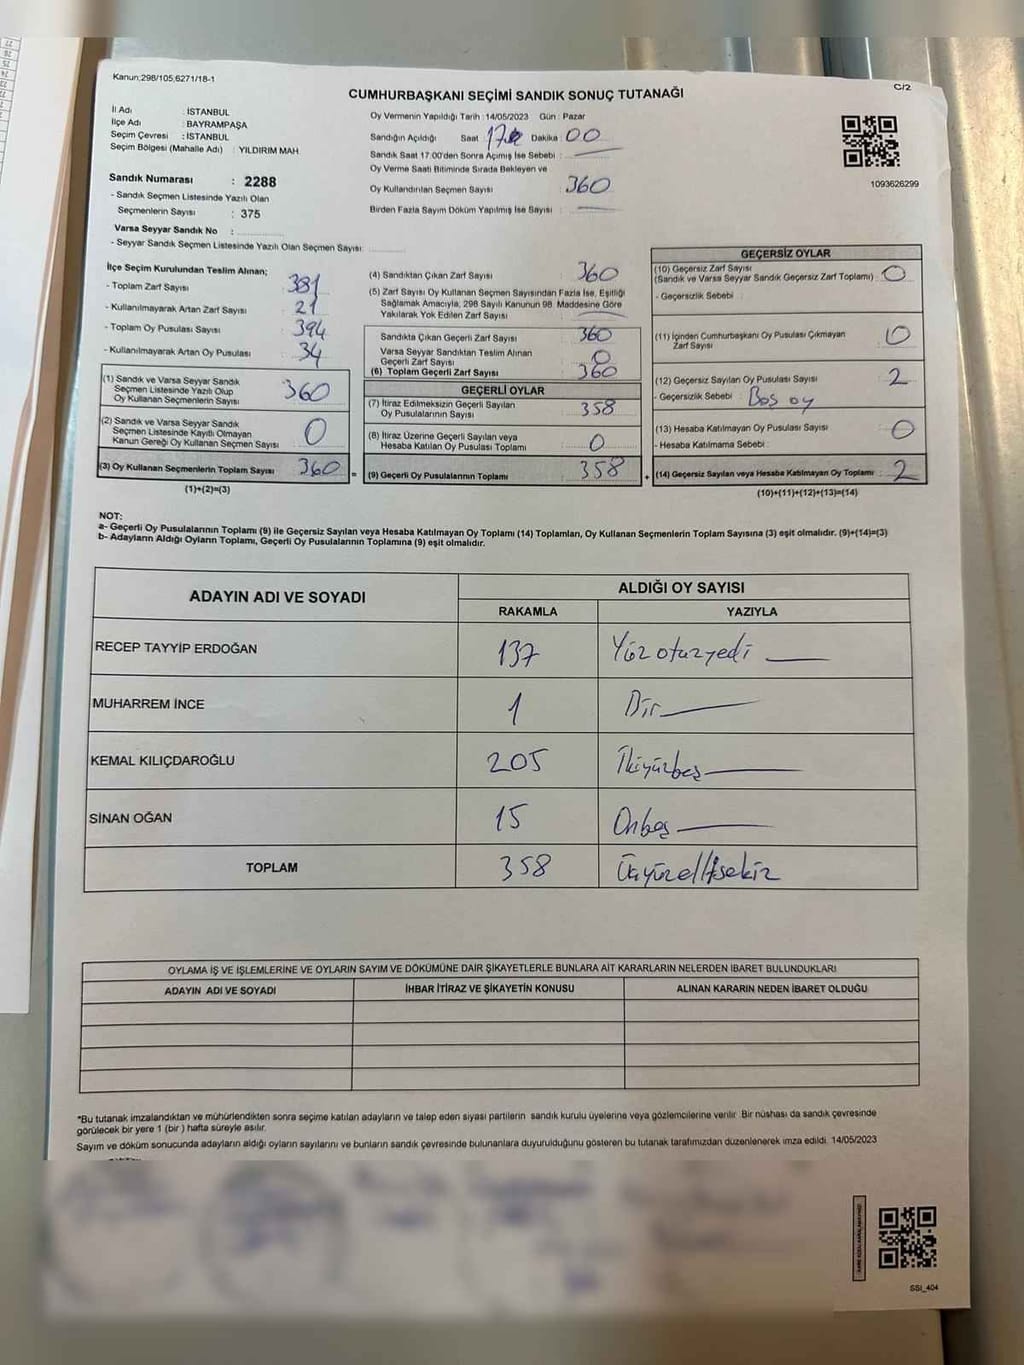 Kanun:298/105,6271/18-1
C/2
CUMHURBAŞKANI SEÇİMİ SANDIK SONUÇ TUTANAĞI
İl Adı : İSTANBUL
İlçe Adı : BAYRAMPAŞA
Seçim Çevresi : İSTANBUL
Seçim Bölgesi (Mahalle Adı) : YILDIRIM MAH.
Sandık Numarası : 2288
- Sandık Seçmen Listesinde Yazılı Olan
Seçmenlerin Sayısı : 375
Varsa Seyyar Sandık No :
- Seyyar Sandık Seçmen Listesinde Yazılı Olan Seçmen Sayısı:
Oy Vermenin Yapıldığı Tarih :14/05/2023 Gün : Pazar
Sandığın Açıldığı Saat 17 Dakika 00
Sandık Saat 17:00'den Sonra Açılmış İse Sebebi :
Oy Verme Saati Bitiminde Sırada Bekleyen ve
Oy Kullandırılan Seçmen Sayısı 360
Birden Fazla Sayım Döküm Yapılmış İse Sayısı :
1093626299
İlçe Seçim Kurulundan Teslim Alınan;
- Toplam Zarf Sayısı : 381
- Kullanılmayarak Artan Zarf Sayısı : 21
- Toplam Oy Pusulası Sayısı : 394
- Kullanılmayarak Artan Oy Pusulası : 34
(1) Sandık ve Varsa Seyyar Sandık
Seçmen Listesinde Yazılı Olup
Oy Kullanan Seçmenlerin Sayısı : 360
(2) Sandık ve Varsa Seyyar Sandık
Seçmen Listesinde Kayıtlı Olmayan
Kanun Gereği Oy Kullanan Seçmen Sayısı : 0
(3) Oy Kullanan Seçmenlerin Toplam Sayısı : 360
(1)+(2)=(3)
=
(4) Sandıktan Çıkan Zarf Sayısı : 360
(5) Zarf Sayısı Oy Kullanan Seçmen Sayısından Fazla İse, Eşitliği
Sağlamak Amacıyla, 298 Sayılı Kanunun 98. Maddesine Göre
Yakılarak Yok Edilen Zarf Sayısı :
Sandıkta Çıkan Geçerli Zarf Sayısı : 360
Varsa Seyyar Sandıktan Teslim Alınan
Geçerli Zarf Sayısı : 0
(6) Toplam Geçerli Zarf Sayısı : 360
GEÇERLİ OYLAR
(7) İtiraz Edilmeksizin Geçerli Sayılan
Oy Pusulalarının Sayısı : 358
(8) İtiraz Üzerine Geçerli Sayılan veya
Hesaba Katılan Oy Pusulaları Toplamı : 0
(9) Geçerli Oy Pusulalarının Toplamı : 358
+
GEÇERSİZ OYLAR
(10) Geçersiz Zarf Sayısı
(Sandık ve Varsa Seyyar Sandık Geçersiz Zarf Toplamı) : 0
- Geçersizlik Sebebi :
(11) İçinden Cumhurbaşkanı Oy Pusulası Çıkmayan
Zarf Sayısı : 0
(12) Geçersiz Sayılan Oy Pusulası Sayısı : 2
- Geçersizlik Sebebi : Boş oy
(13) Hesaba Katılmayan Oy Pusulası Sayısı : 0
- Hesaba Katılmama Sebebi :
(14) Geçersiz Sayılan veya Hesaba Katılmayan Oy Toplamı : 2
(10)+(11)+(12)+(13)=(14)
NOT:
a- Geçerli Oy Pusulalarının Toplamı (9) ile Geçersiz Sayılan veya Hesaba Katılmayan Oy Toplamı (14) Toplamları, Oy Kullanan Seçmenlerin Toplam Sayısına (3) eşit olmalıdır. (9)+(14)=(3)
b- Adayların Aldığı Oyların Toplamı, Geçerli Oy Pusulalarının Toplamına (9) eşit olmalıdır.
ADAYIN ADI VE SOYADI
ALDIĞI OY SAYISI
RAKAMLA YAZIYLA
RECEP TAYYİP ERDOĞAN 137 Yüzotuzyedi
MUHARREM İNCE 1 Bir
KEMAL KILIÇDAROĞLU 205 İkiyüzbeş
SİNAN OĞAN 15 Onbeş
TOPLAM 358 Üçyüzellisekiz
OYLAMA İŞ VE İŞLEMLERİNE VE OYLARIN SAYIM VE DÖKÜMÜNE DAİR ŞİKAYETLERLE BUNLARA AİT KARARLARIN NELERDEN İBARET BULUNDUKLARI
ADAYIN ADI VE SOYADI İHBAR İTİRAZ VE ŞİKAYETİN KONUSU ALINAN KARARIN NEDEN İBARET OLDUĞU
*Bu tutanak imzalandıktan ve mühürlendikten sonra seçime katılan adayların ve talep eden siyasi partilerin sandık kurulu üyelerine veya gözlemcilerine verilir. Bir nüshası da sandık çevresinde
görülecek bir yere 1 (bir) hafta süreyle asılır.
Sayım ve döküm sonucunda adayların aldığı oyların sayılarını ve bunların sandık çevresinde bulunanlara duyurulduğunu gösteren bu tutanak tarafımızdan düzenlenerek imza edildi. 14/05/2023
SSI_404